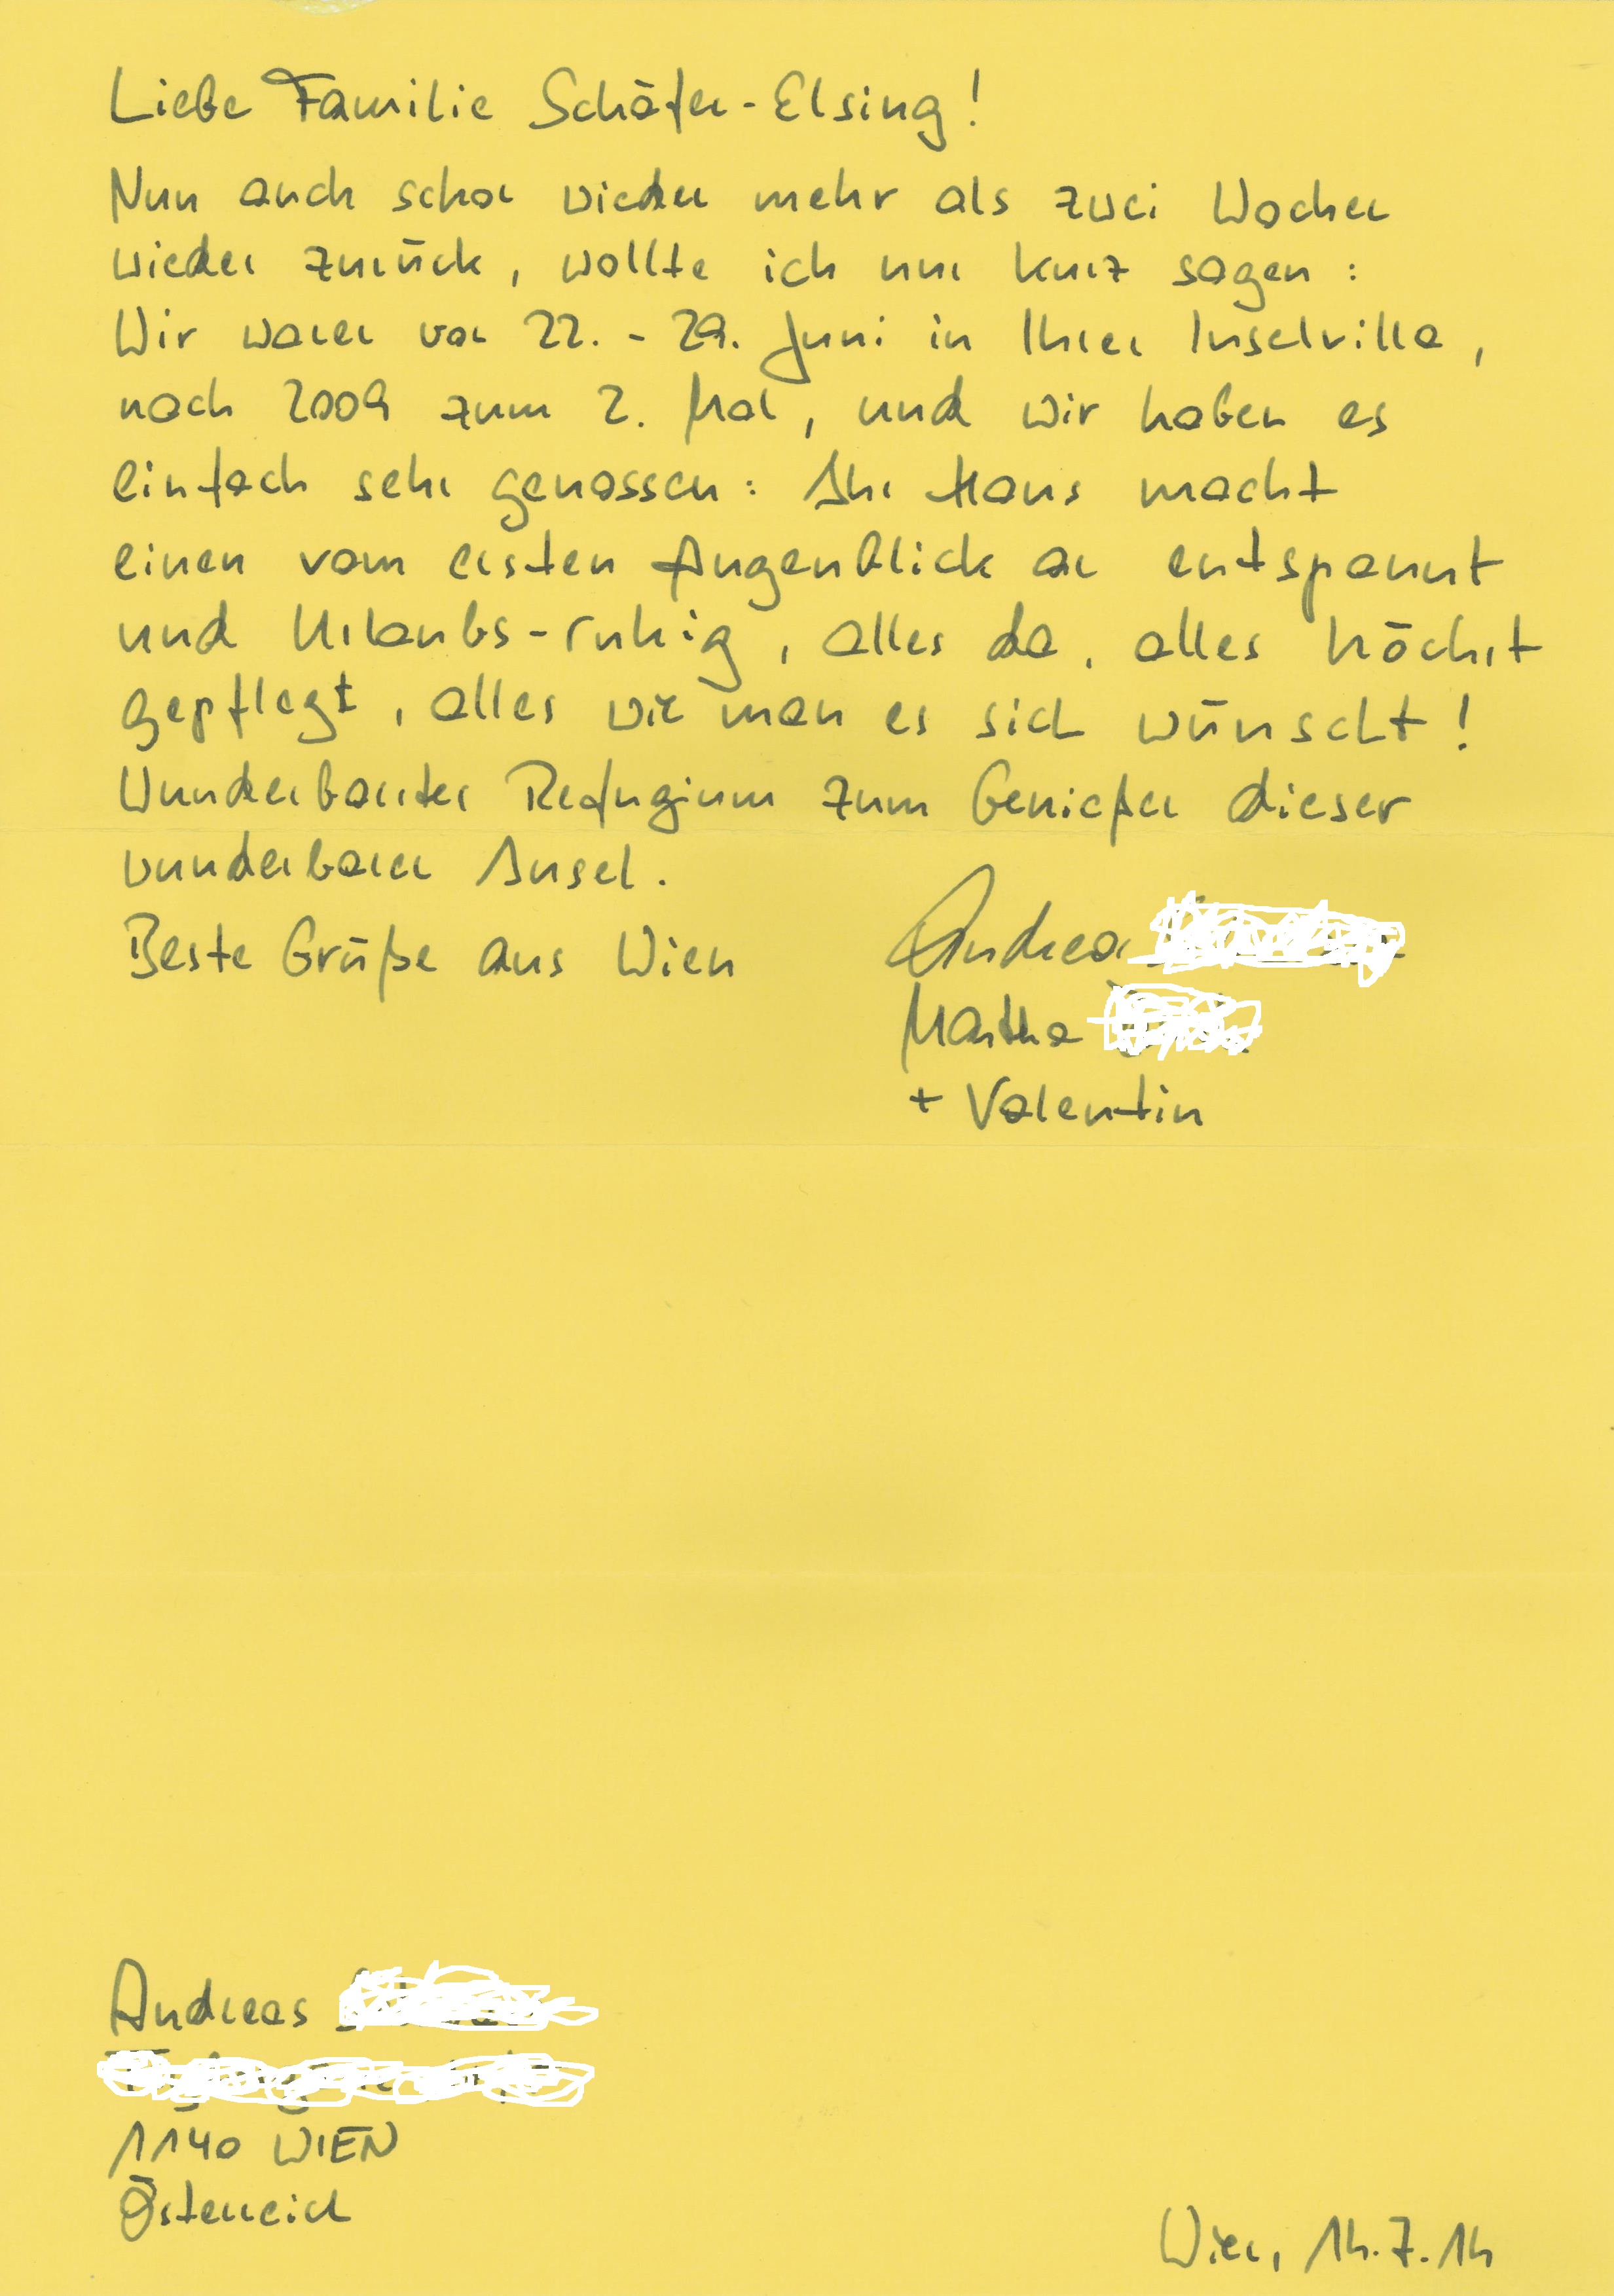 Liebe Familie Schäfer-Elsing!
Nun auch schon wieder mehr als zwei Wochen
wieder zurück, wollte ich nur kurz sagen:
Wir waren von 22. - 29. Juni in Ihrer Inselvilla,
nach 2009 zum 2. Mal, und wir haben es
einfach sehr genossen: Ihr Haus macht
einen vom ersten Augenblick an entspannt
und Urlaubs-ruhig, alles da, alles höchst
gepflegt, alles wie man es sich wünscht!
Wunderbarstes Refugium zum Genießen dieser
wunderbaren Insel.
Beste Grüße aus Wien
Andreas
Martha
+ Valentin
Andreas
1140 WIEN
Österreich
Wien, 14.7.14